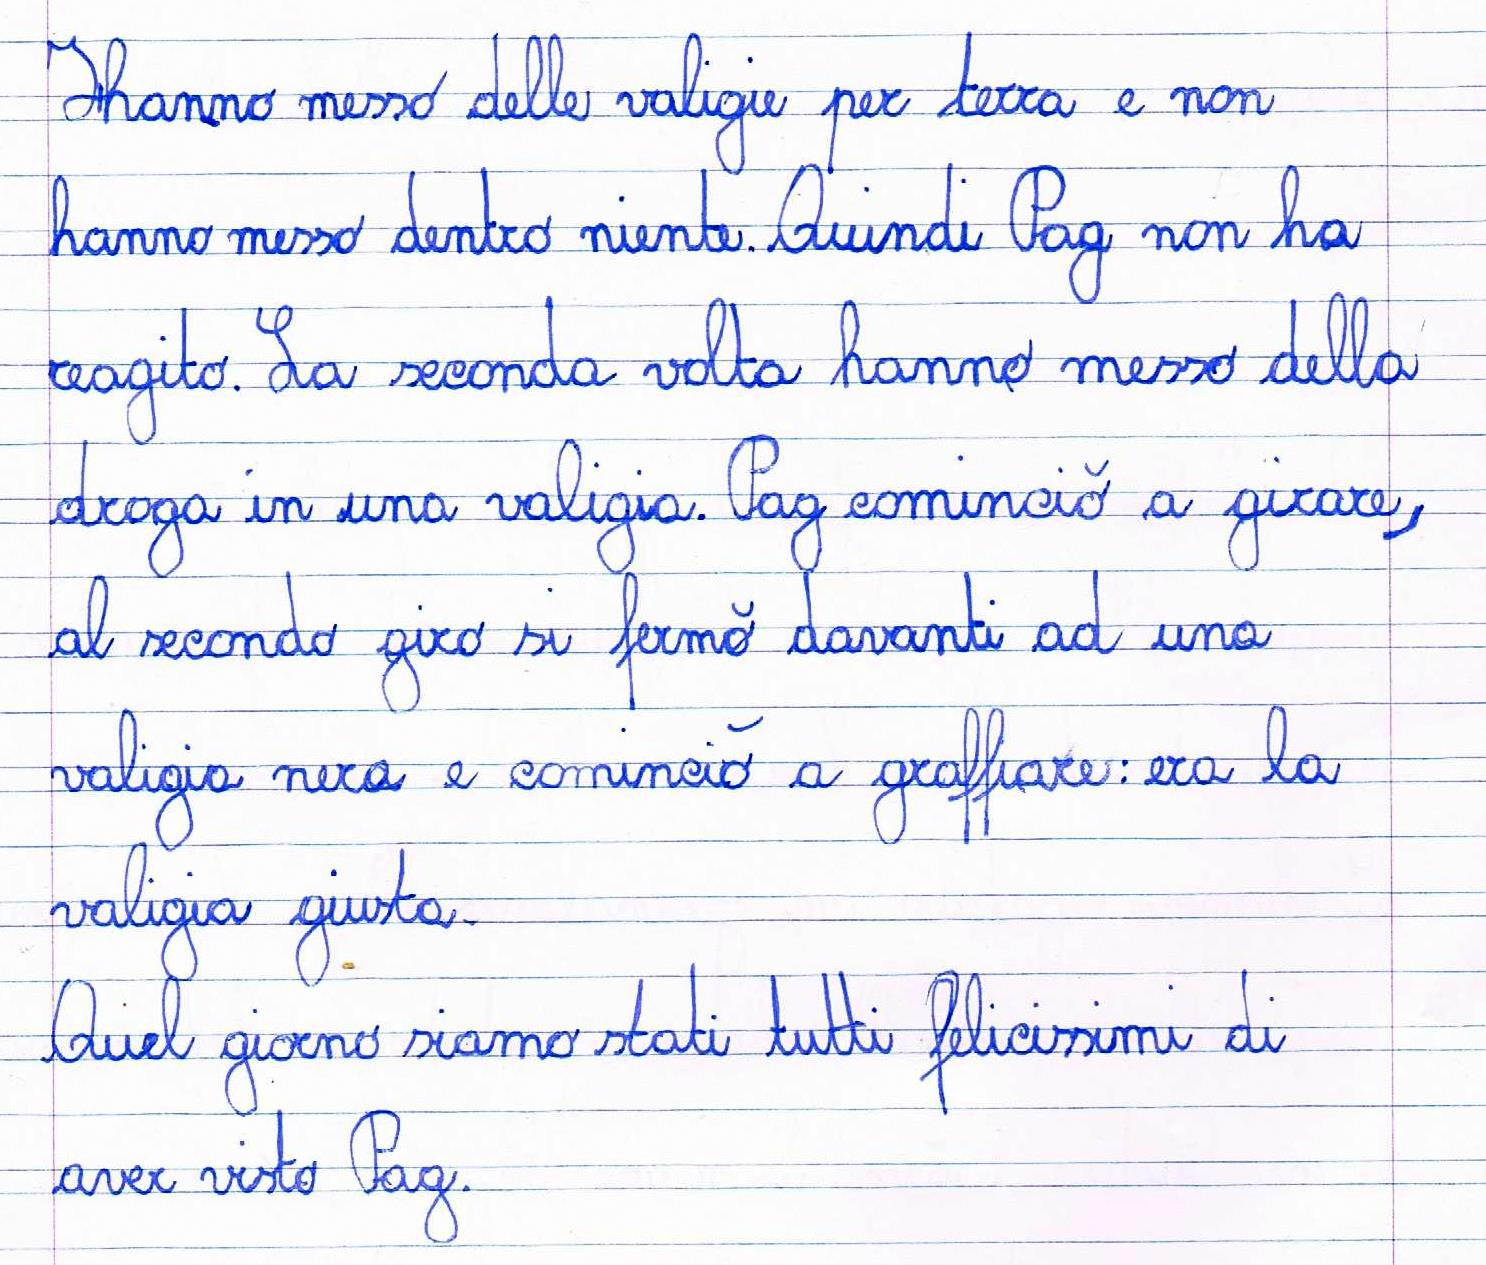 Hanno messo delle valigie per terra e non
hanno messo dentro niente. Quindi Pag non ha
reagito. La seconda volta hanno messo della
droga in una valigia. Pag cominciò a girare,
al secondo giro si fermò davanti ad una
valigia nera e cominciò a graffiare: era la
valigia giusta.
Quel giorno siamo stati tutti felicissimi di
aver visto Pag.